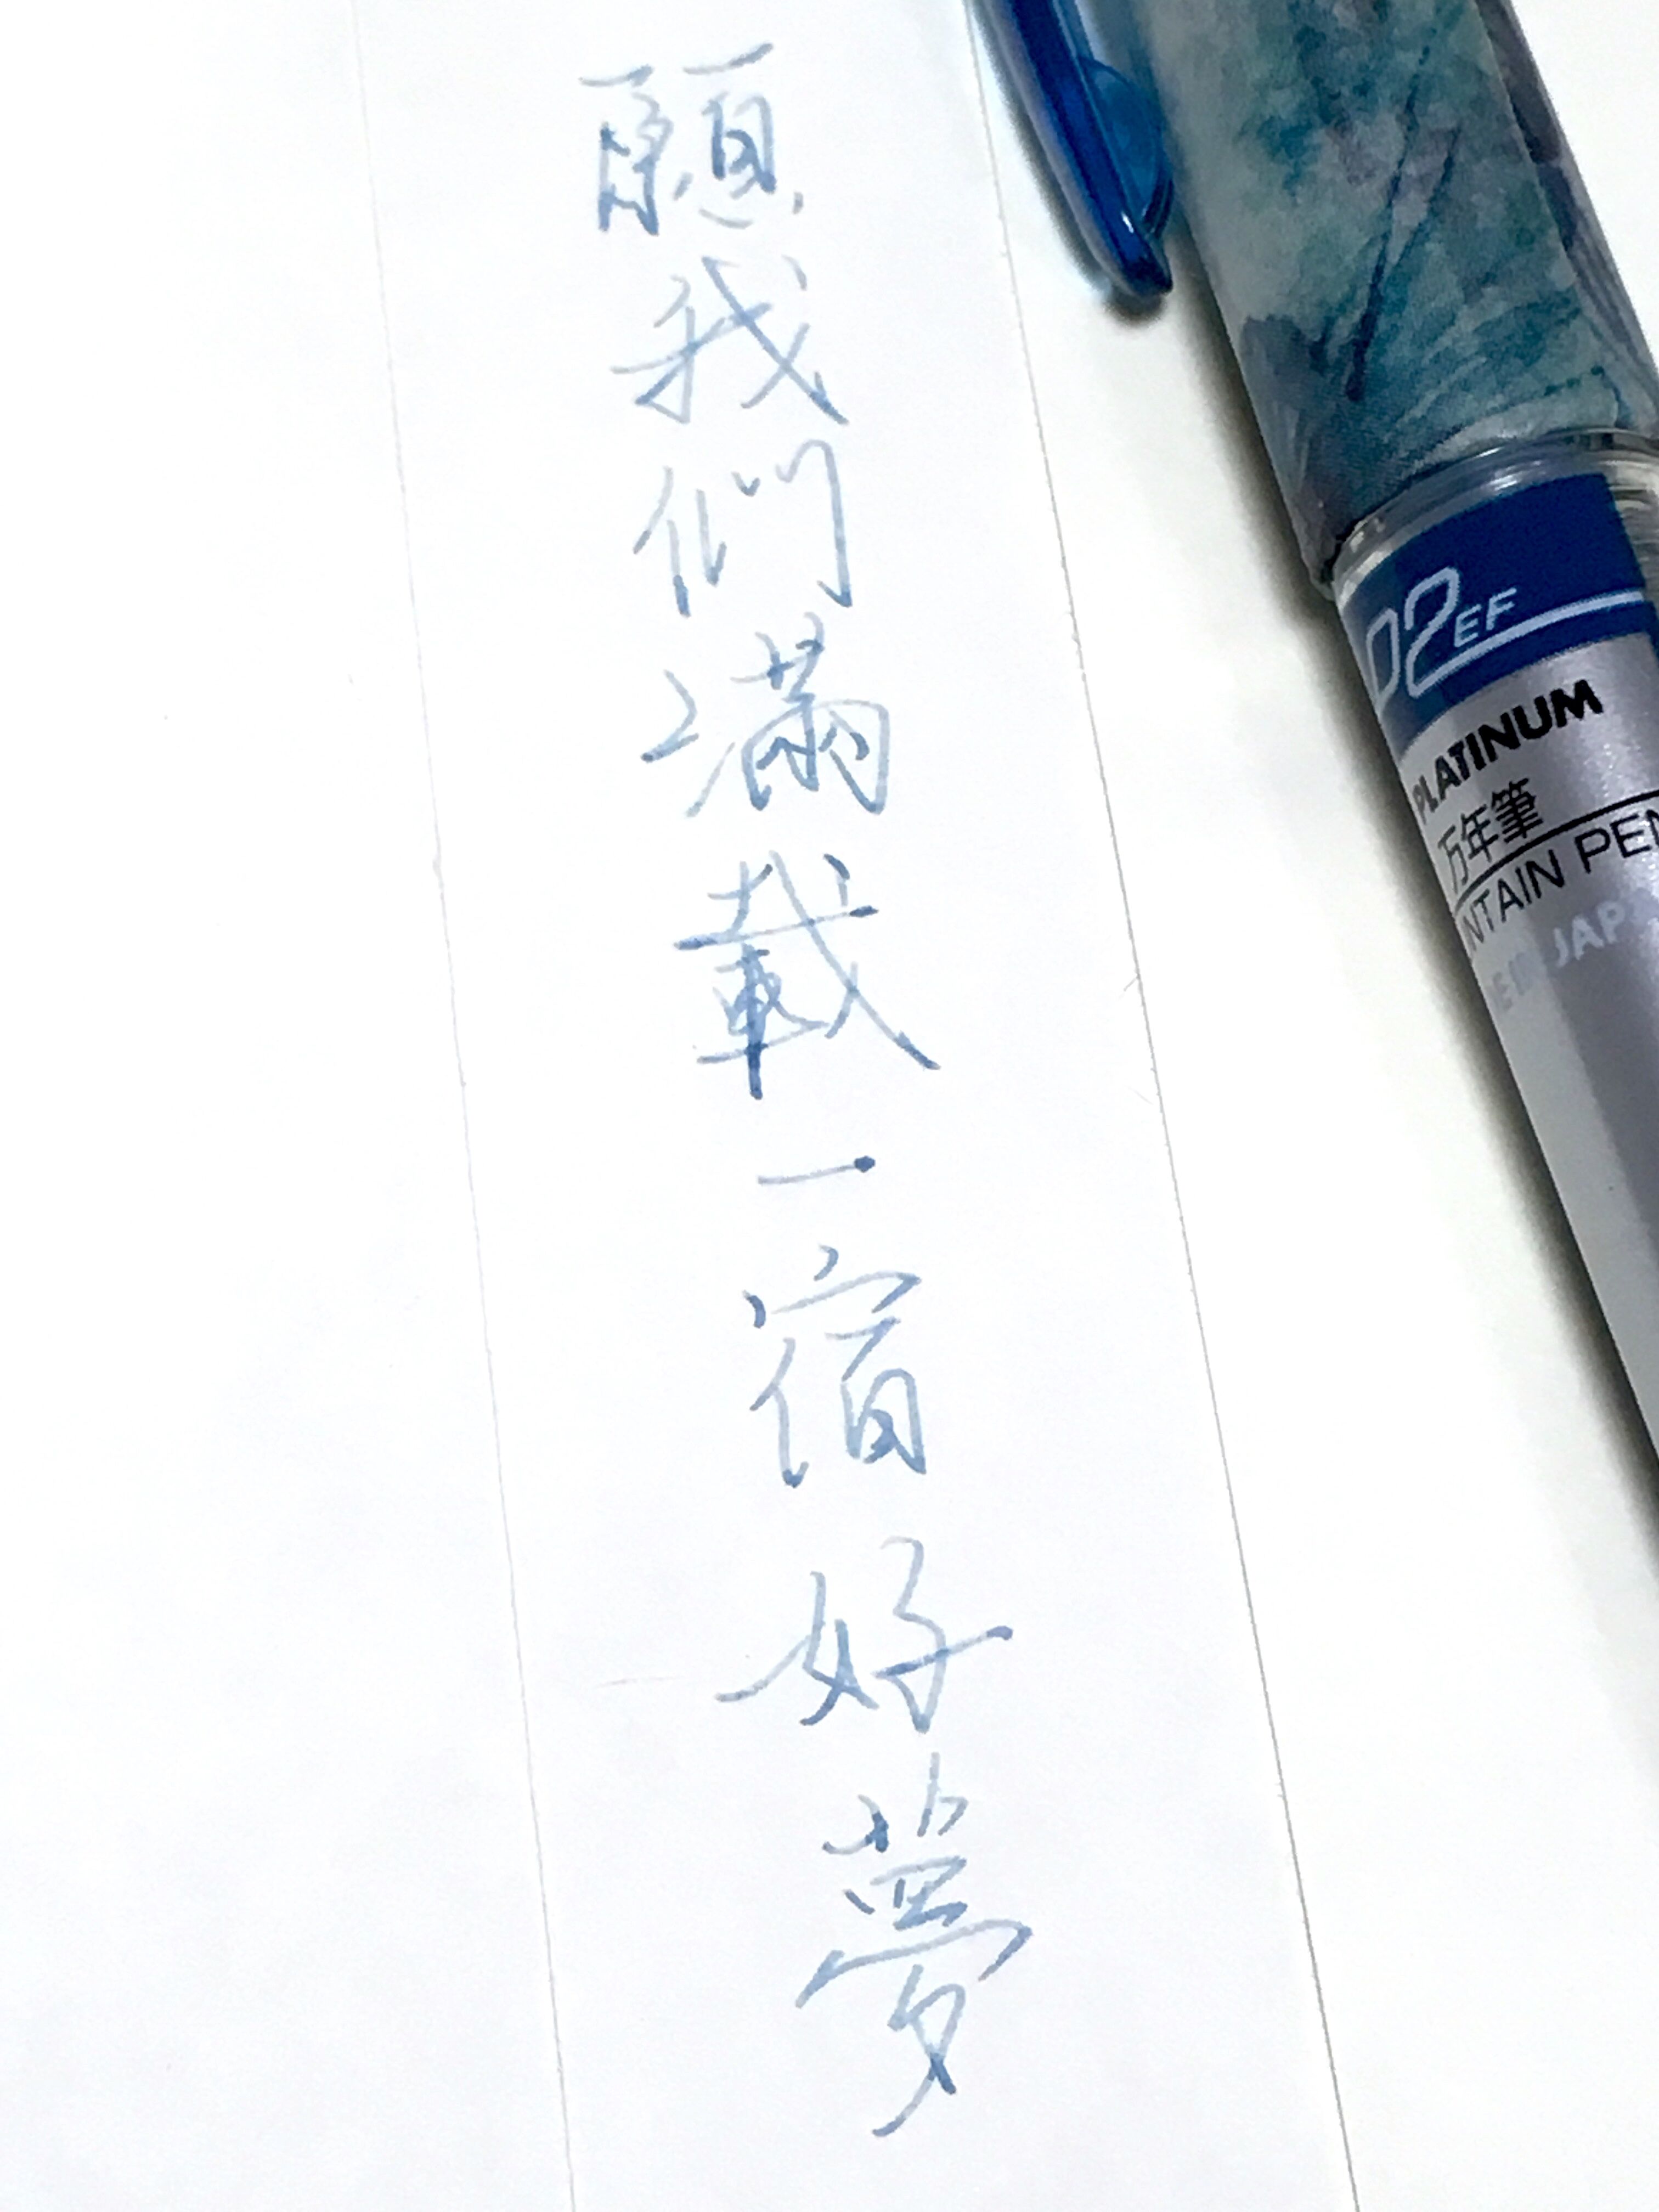 願我們滿載一宿好夢
02 EF
PLATINUM
万年筆
NTAIN PEN
E IN JAP